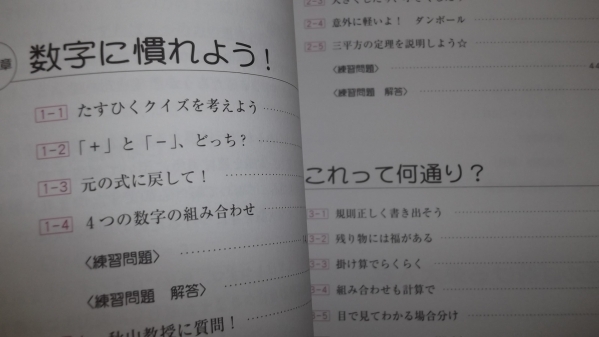 章
数字に慣れよう!
1-1 たすひくクイズを考えよう
1-2 「+」と「-」、どっち?
1-3 元の式に戻して!
1-4 4つの数字の組み合わせ
〈練習問題〉
〈練習問題 解答〉
秋山教授に質問!
2-4 意外に軽いよ! ダンボール
2-5 三平方の定理を説明しよう☆
〈練習問題〉
〈練習問題 解答〉
これって何通り?
3-1 規則正しく書き出そう
3-2 残り物には福がある
3-3 掛け算でらくらく
3-4 組み合わせも計算で
3-5 目で見てわかる場合分け